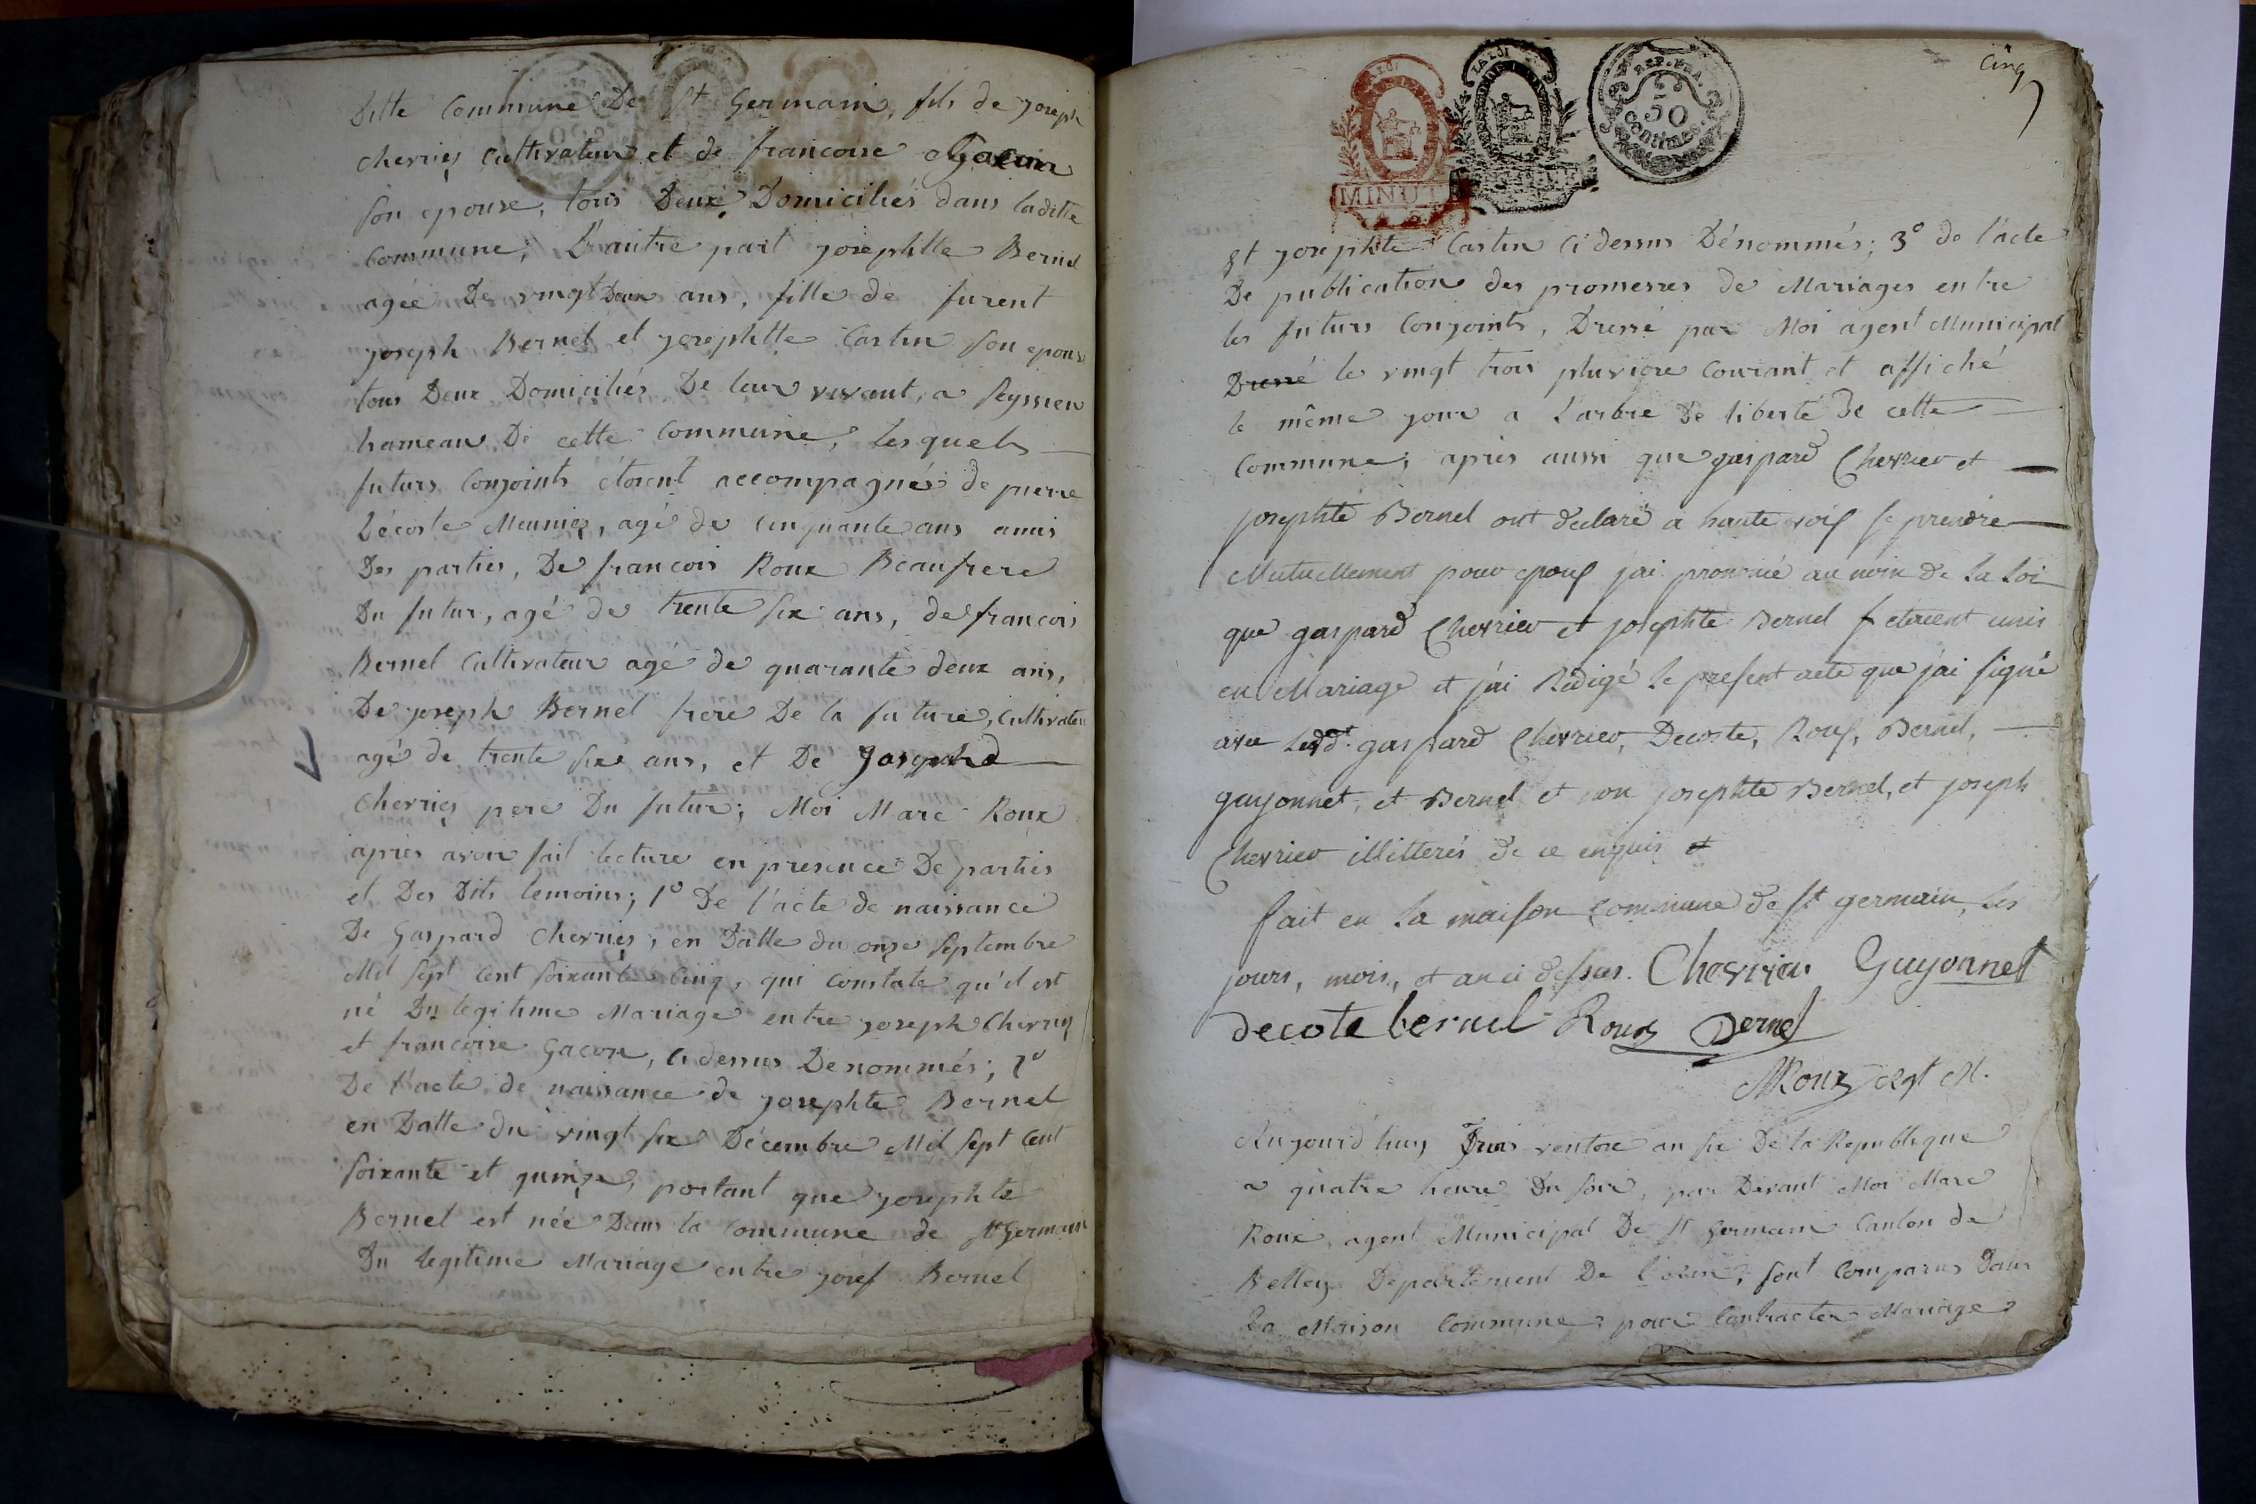 ditte Commune De St Germain, fils de joseph
cherrier Cultivateur et de francoise Gacon
son epouse, tous Deux Domiciliés dans laditte
Commune; D'autre part josephtte Bernel
agée De vingt Deux ans, fille de furent
joseph Bernel et josephtte Castin son epouse
tous Deux Domiciliés De leur vivant, a Peyssieu
hameau De cette Commune, lesquels
futurs Conjoints étoient accompagnés de pierre
Décoste Meunier, agé de cinquante ans amis
Des parties, De francois Roux Beaufrere
Du futur, agé de trente six ans, de francois
Bernel Cultivateur agé de quarante deux ans,
De joseph Bernel frere De la future, Cultivateur
agé de trente six ans, et De
Cherrier pere Du futur; Moi Marc Roux
après avoir fait lecture en presence De parties
et Des Dits temoins; 1º De l'acte de naissance
De Gaspard Cherrier, en Datte du onze Septembre
Mil Sept Cent Soixante Cinq, qui Constate qu'il est
né Du legitime Mariage entre joseph Cherrier
et francoise Gacon, Ci dessus Denommés; 2º
De l'acte de naissance de josephte Bernel
en Datte du vingt six Décembre Mil Sept Cent
Soixante et quinze, portant que josephte
Bernel est née Dans la Commune de St Germain
Du Legitime Mariage entre josef Bernel
Cinq
LA LOI
MINUTE
LA LOI
REP. FRA.
50
Centimes
Et josephte Castin Ci dessus Dénommés; 3º de l'acte
De publication des promesses de Mariages entre
les futurs Conjoints, Dressé par Moi agent Municipal
Dressé le vingt trois pluviose Courant et affiché
le même jour a L'arbre De liberté De cette
Commune; après aussi que gaspard Chevrier et
josephte Bernel ont declaré a haute voix se prendre
Mutuellement pour epoux j'ai prononcé au nom de la Loi
que gaspard Chevrier et josephte Bernel s etoient unis
en Mariage et j'ai Rédigé le present acte que j'ai signé
avec gaspard Chevrier, Decoste, Roux, Bernel,
guyonnet, et Bernel et non josephte Bernel, et joseph
Chevrier illitterés de ce enquis
fait en la maison Commune de St germain, les
jours, mois, et an ci dessus. Chevrier Guyonnet
decote bernel Roux Bernel
MRoux agt M.
Aujourd'huy Trois ventose an six De la Republique
a quatre heure Du soir, par Devant Moi Marc
Roux, agent Municipal De St Germain Canton de
Belley Departement De l'ain, sont Comparus Dans
La Maison Commune pour Contracter Mariage